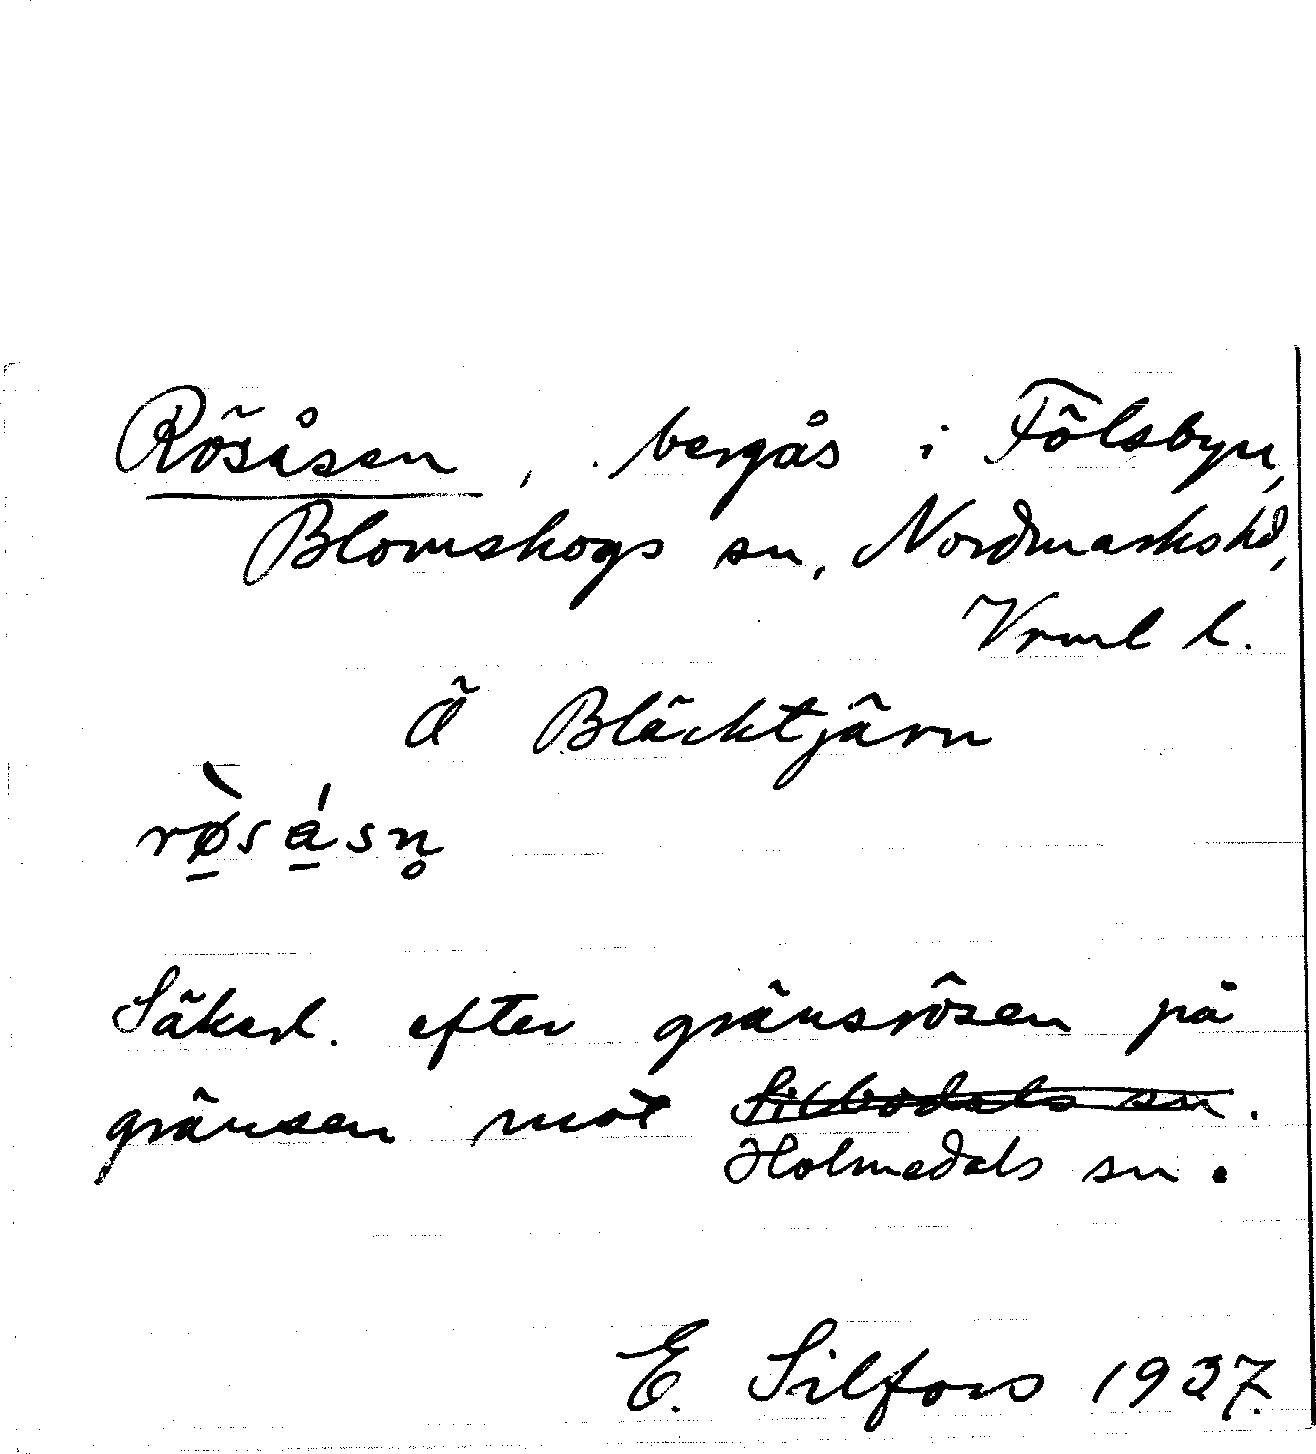 Rösåsen, bergås i Fölsbyn,
Blomskogs sn, Nordmarks hd,
Vrml l.
Ä Bläcktjärn
rø̱̀sá̱sn̥
Säkerl. efter gränsrösen på
gränsen mot Silbodals sn.
Holmedals sn.
E. Silfors 1937.